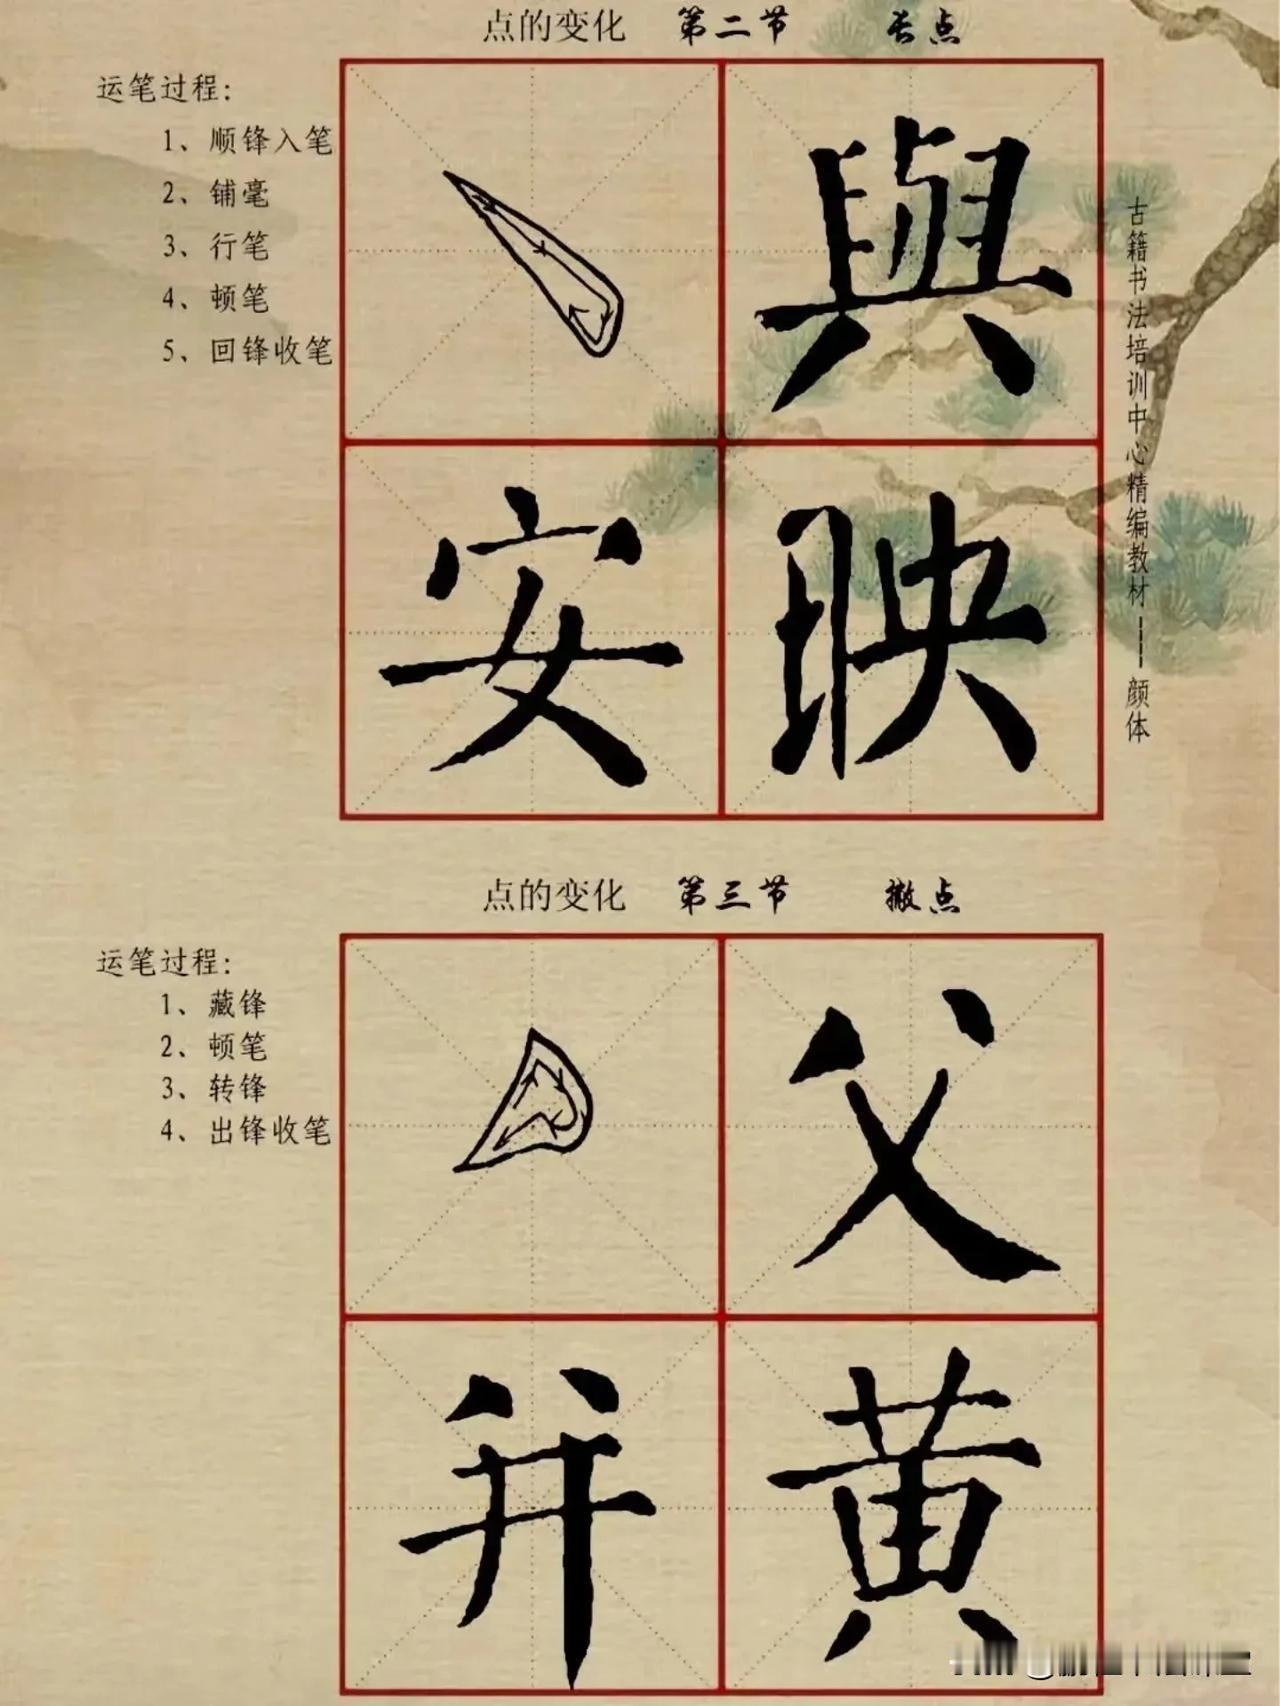 点的变化 第二节 长点
运笔过程:
1、顺锋入笔
2、铺毫
3、行笔
4、顿笔
5、回锋收笔
與
安 映
古籍书法培训中心精编教材——颜体
点的变化 第三节 撇点
运笔过程:
1、藏锋
2、顿笔
3、转锋
4、出锋收笔
父
并 黄